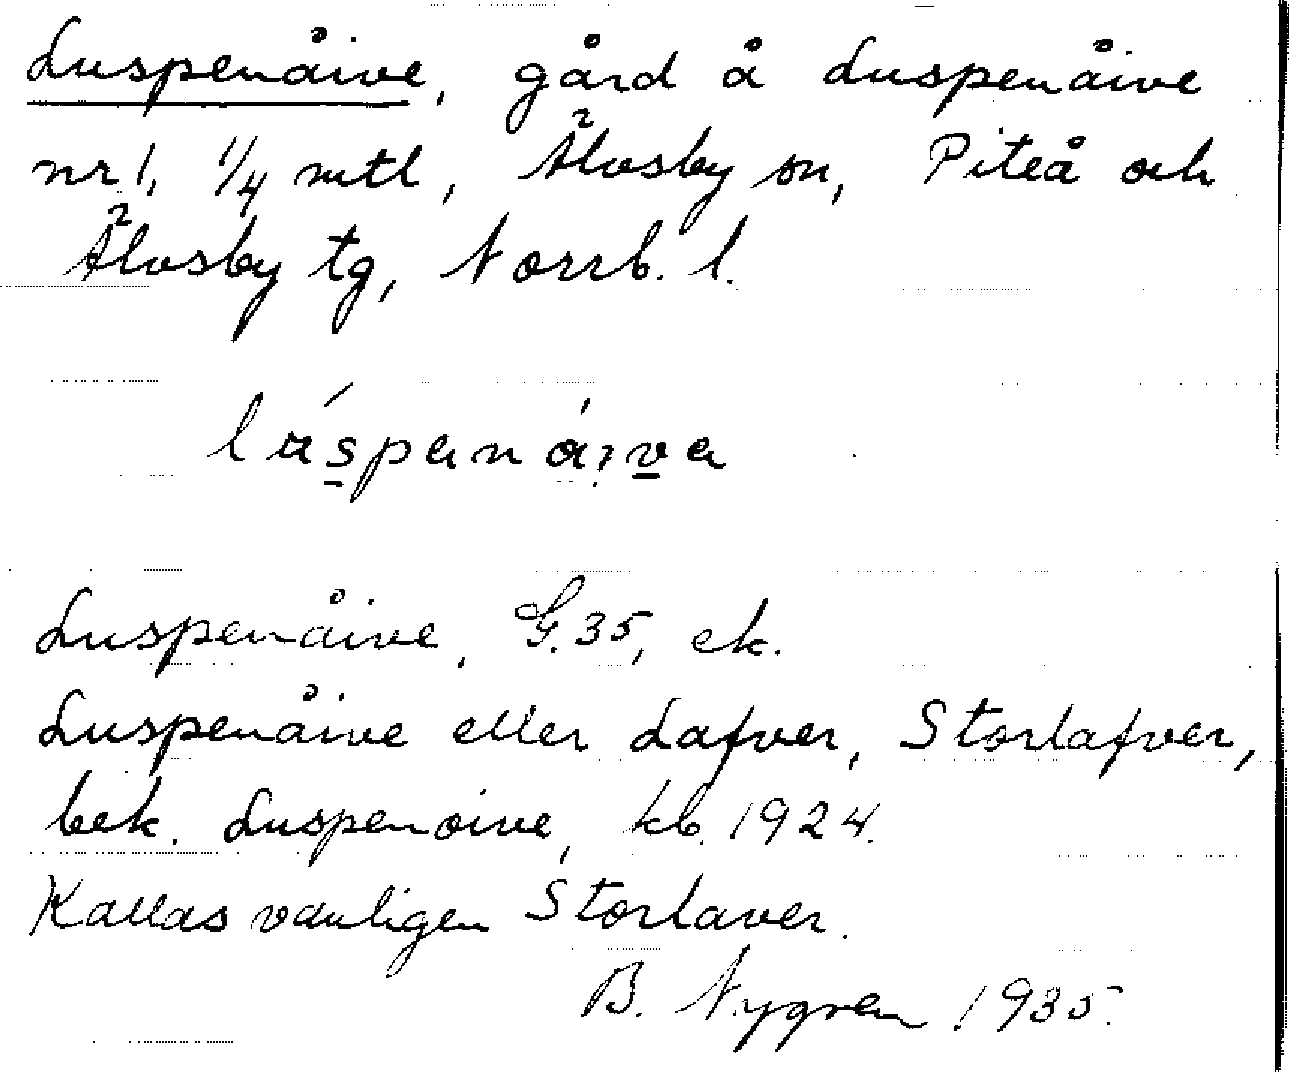 Luspenåive, gård å Luspenåive
nr 1, 1/4 mtl, Älvsby sn, Piteå och
Älvsby tg, Norrb. l.
Luspenåive, G. 35, ek.
Luspenåive eller Lafver, Storlafver,
bek. Luspenoive, kb. 1924.
Kallas vanligen Storlaver.
B. Nygren 1935.